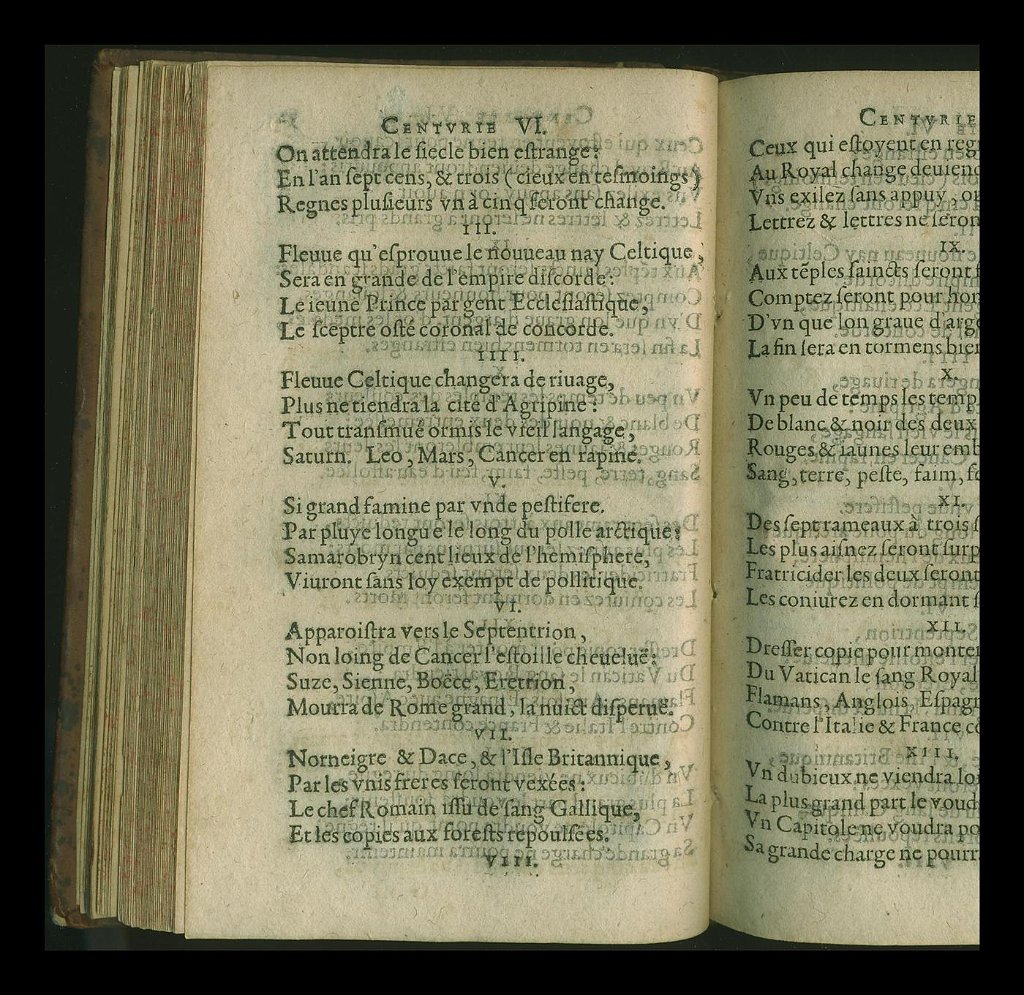 CENTVRIE VI.
On attendra le siecle bien estrange:
En l'an sept cens, & trois (cieux en tesmoings)
Regnes plusieurs vn à cinq feront change.
III.
Fleuue qu'esprouue le nouueau nay Celtique,
Sera en grande de l'empire discorde:
Le ieune Prince par gent Ecclesiastique,
Le sceptre osté coronal de concorde.
IIII.
Fleuue Celtique changera de riuage,
Plus ne tiendra la cité d'Agripine:
Tout transmué ormis le vieil langage,
Saturn. Leo, Mars, Cancer en rapine.
V.
Si grand famine par vnde pestifere.
Par pluye longue le long du polle arctique:
Samarobryn cent lieux de l'hemisphere,
Viuront sans loy exempt de pollitique.
VI.
Apparoistra vers le Septentrion,
Non loing de Cancer l'estoille cheueluë:
Suze, Sienne, Boëce, Eretrion,
Mourra de Rome grand, la nuict disperuë.
VII.
Norneigre & Dace, & l'Isle Britannique,
Par les vnis freres seront vexées:
Le chef Romain issu de sang Gallique,
Et les copies aux forests repoulsées.
VIII.
CENTVRIE
Ceux qui estoyent en reg
Au Royal change deuiend
Vns exilez sans appuy, or
Lettrez & lettres ne seron
IX.
Aux tẽples saincts seront s
Comptez seront pour hon
D'vn que lon graue d'arge
La fin sera en tormens bien
X.
Vn peu de temps les temp
De blanc & noir des deux
Rouges & iaunes leur emb
Sang, terre, peste, faim, fe
XI.
Des sept rameaux à trois s
Les plus aisnez seront surp
Fratricider les deux seront
Les coniurez en dormant s
XII.
Dresser copie pour monter
Du Vatican le sang Royal
Flamans, Anglois, Espagn
Contre l'Italie & France co
XIII.
Vn dubieux ne viendra loi
La plus grand part le voud
Vn Capitole ne voudra po
Sa grande charge ne pourr